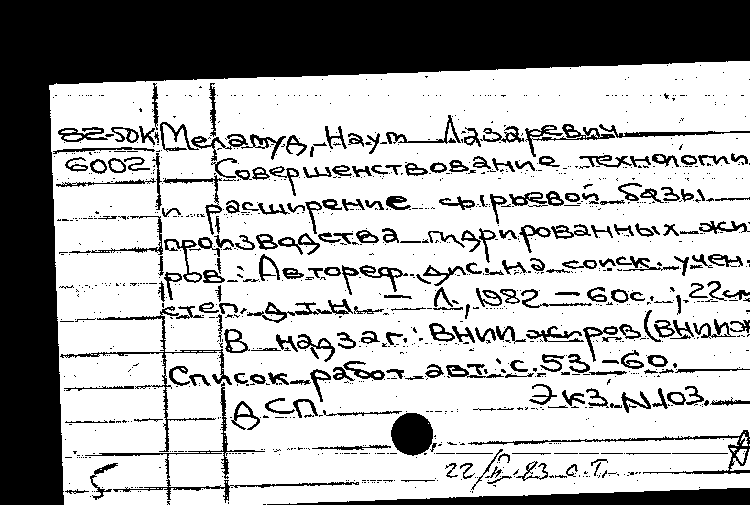 82-50К Меламуд, Наум Лазаревич
6002 Совершенствование технологии
и расширение сырьевой базы
производства гидрированных жи-
ров: Автореф. дис. на соиск. учен.
степ. д.т.н. — Л., 1982 — 60с.; 22см
В надзаг.: ВНИИ жиров (ВНИИЖ
Список работ авт.: с. 53-60.
ДСП. Экз. N 103.
22/IV.83 с.т.
5